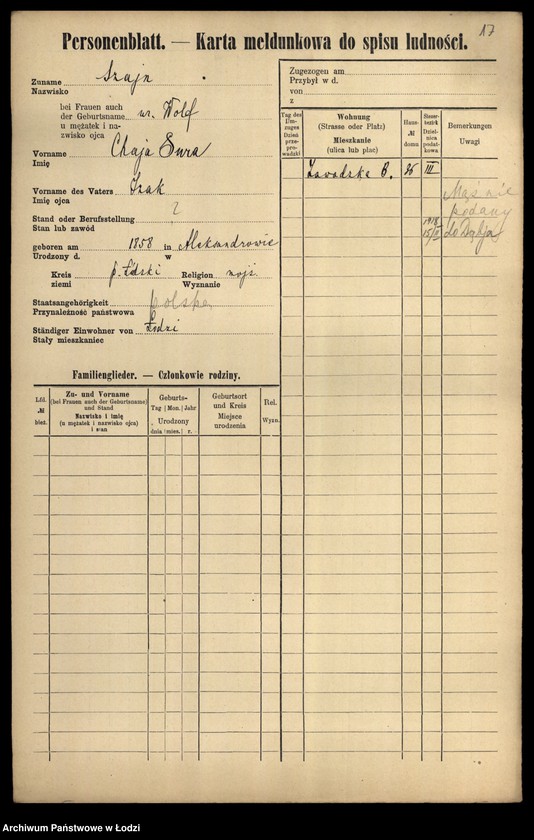 17
Personenblatt. — Karta meldunkowa do spisu ludności.
Zuname Szajn
Nazwisko
bei Frauen auch
der Geburtsname ur. Wolf
u mężatek i na-
zwisko ojca
Vorname Chaja Sura
Imię
Vorname des Vaters Izak
Imię ojca
Stand oder Berufsstellung ?
Stan lub zawód
geboren am 1858 in Aleksandrowie
Urodzony d. w
Kreis p. Łódzki Religion mojż.
ziemi Wyznanie
Staatsangehörigkeit polska
Przynależność państwowa
Ständiger Einwohner von Łodzi
Stały mieszkaniec
Familienglieder. — Członkowie rodziny.
Lfd. № bież.
Zu- und Vorname
(bei Frauen auch der Geburtsname)
und Stand
Nazwisko i imię
(u mężatek i nazwisko ojca)
i stan
Geburts-
Tag | Mon. | Jahr
Urodzony
dnia | mies. | r.
Geburtsort
und Kreis
Miejsce
urodzenia
Rel.
Wyzn.
Zugezogen am
Przybył w d.
von
z
Tag des
Um-
zuges
Dzień
prze-
prowadzki
Wohnung
(Strasse oder Platz)
Mieszkanie
(ulica lub plac)
Haus-
№
domu
Steuer-
bezirk
Dzielni-
ca
podat-
kowa
Bemerkungen
Uwagi
Zawadzka B. 26 III
Mąż nie
podany
1918
15/II do Dąbja
Archiwum Państwowe w Łodzi